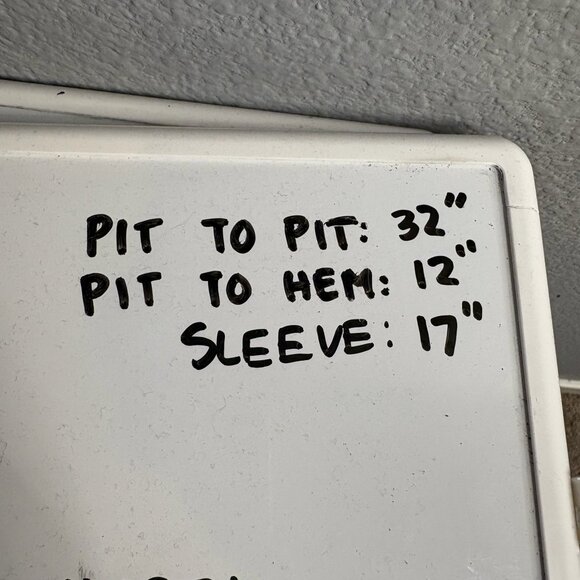 PIT TO PIT: 32"
PIT TO HEM: 12"
SLEEVE: 17"